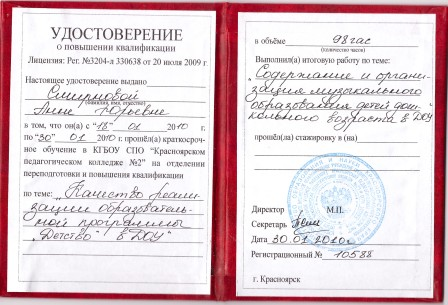 УДОСТОВЕРЕНИЕ
о повышении квалификации
Лицензия: Рег. №3204-л 330638 от 20 июля 2009 г.
Настоящее удостоверение выдано
Смирновой
(фамилия, имя, отчество)
Анне Юрьевне
в том, что он(а) с "18" 01 2010 г.
по "30" 01 2010 г. прошёл(а) краткосроч-
ное обучение в КГБОУ СПО "Красноярском
педагогическом колледже №2" на отделении
переподготовки и повышения квалификации
по теме: "Качество реали-
зации образователь-
ной программы
"Детство" в ДОУ"
в объёме 98 час
(количество часов)
Выполнил(а) итоговую работу по теме:
"Содержание и органи-
зация музыкального
образования детей дош-
кольного возраста в ДОУ
прошёл(ла) стажировку в (на)
Директор М.П.
Секретарь
Дата 30.01.2010г.
Регистрационный № 10588
г. Красноярск